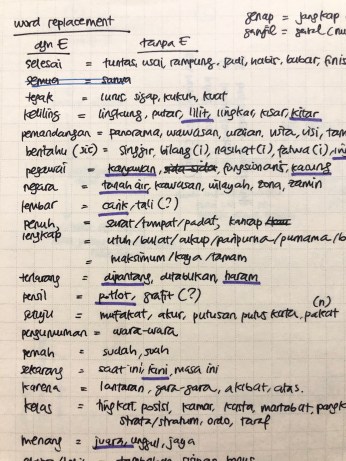 word replacement
genap = jangkap
ganjil = gasal (nu
dgn E tanpa E
selesai = tuntas, usai, rampung, jadi, habis, bubar, finis
semua = sarwa
tegak = lurus, sigap, kukuh, kuat
keliling = lingkung, putar, lilit, lingkar, kisar, kitar
pemandangan = panorama, wawasan, uraian, wista, visi, tam
beritahu (sic) = singgir, bilang (i), nasihat (i), fatwa (i),
pegawai = karyawan, fungsionaris, kaung
negara = tanah air, kawasan, wilayah, zona, zamin
lembar = carik, tali (?)
penuh, = surat/tumpat/padat,
lengkap = utuh/bulat/cukup/paripurna/purnama/b
= maksimum/kaya/tamam
terlarang = dipantang, ditabukan, haram
pensil = potlot, grafit (?)
setuju = mufakat, akur, putusan putus kata, pakat (n)
pengumuman = wara-wara
pernah = sudah, suah
sekarang = saat ini, kini, masa ini
karena = lantaran, gara-gara, akibat, atas.
kelas = tingkat, posisi, kamar, kasta, martabat, pangk
strata/stratum, ordo, taraf
menang = juara, unggul, jaya